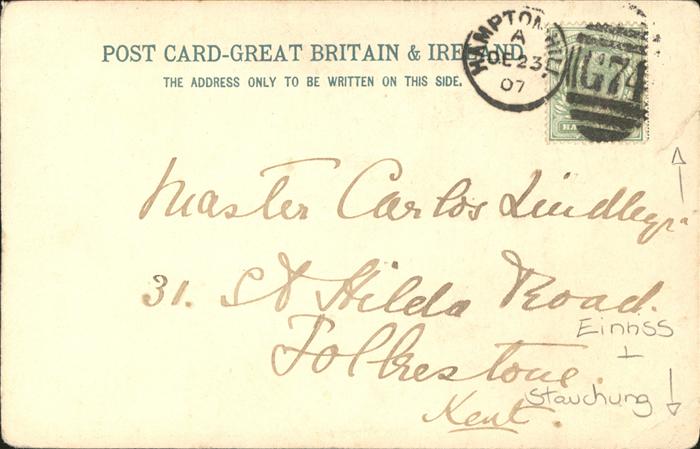 POST CARD-GREAT BRITAIN & IRELAND
THE ADDRESS ONLY TO BE WRITTEN ON THIS SIDE.
HAMPTON HILL
A
DE 23
07
G74
HA
Master Carlos Lindley
31. St Hilda Road.
Folkestone.
Kent.
Einriss
+
Stauchung